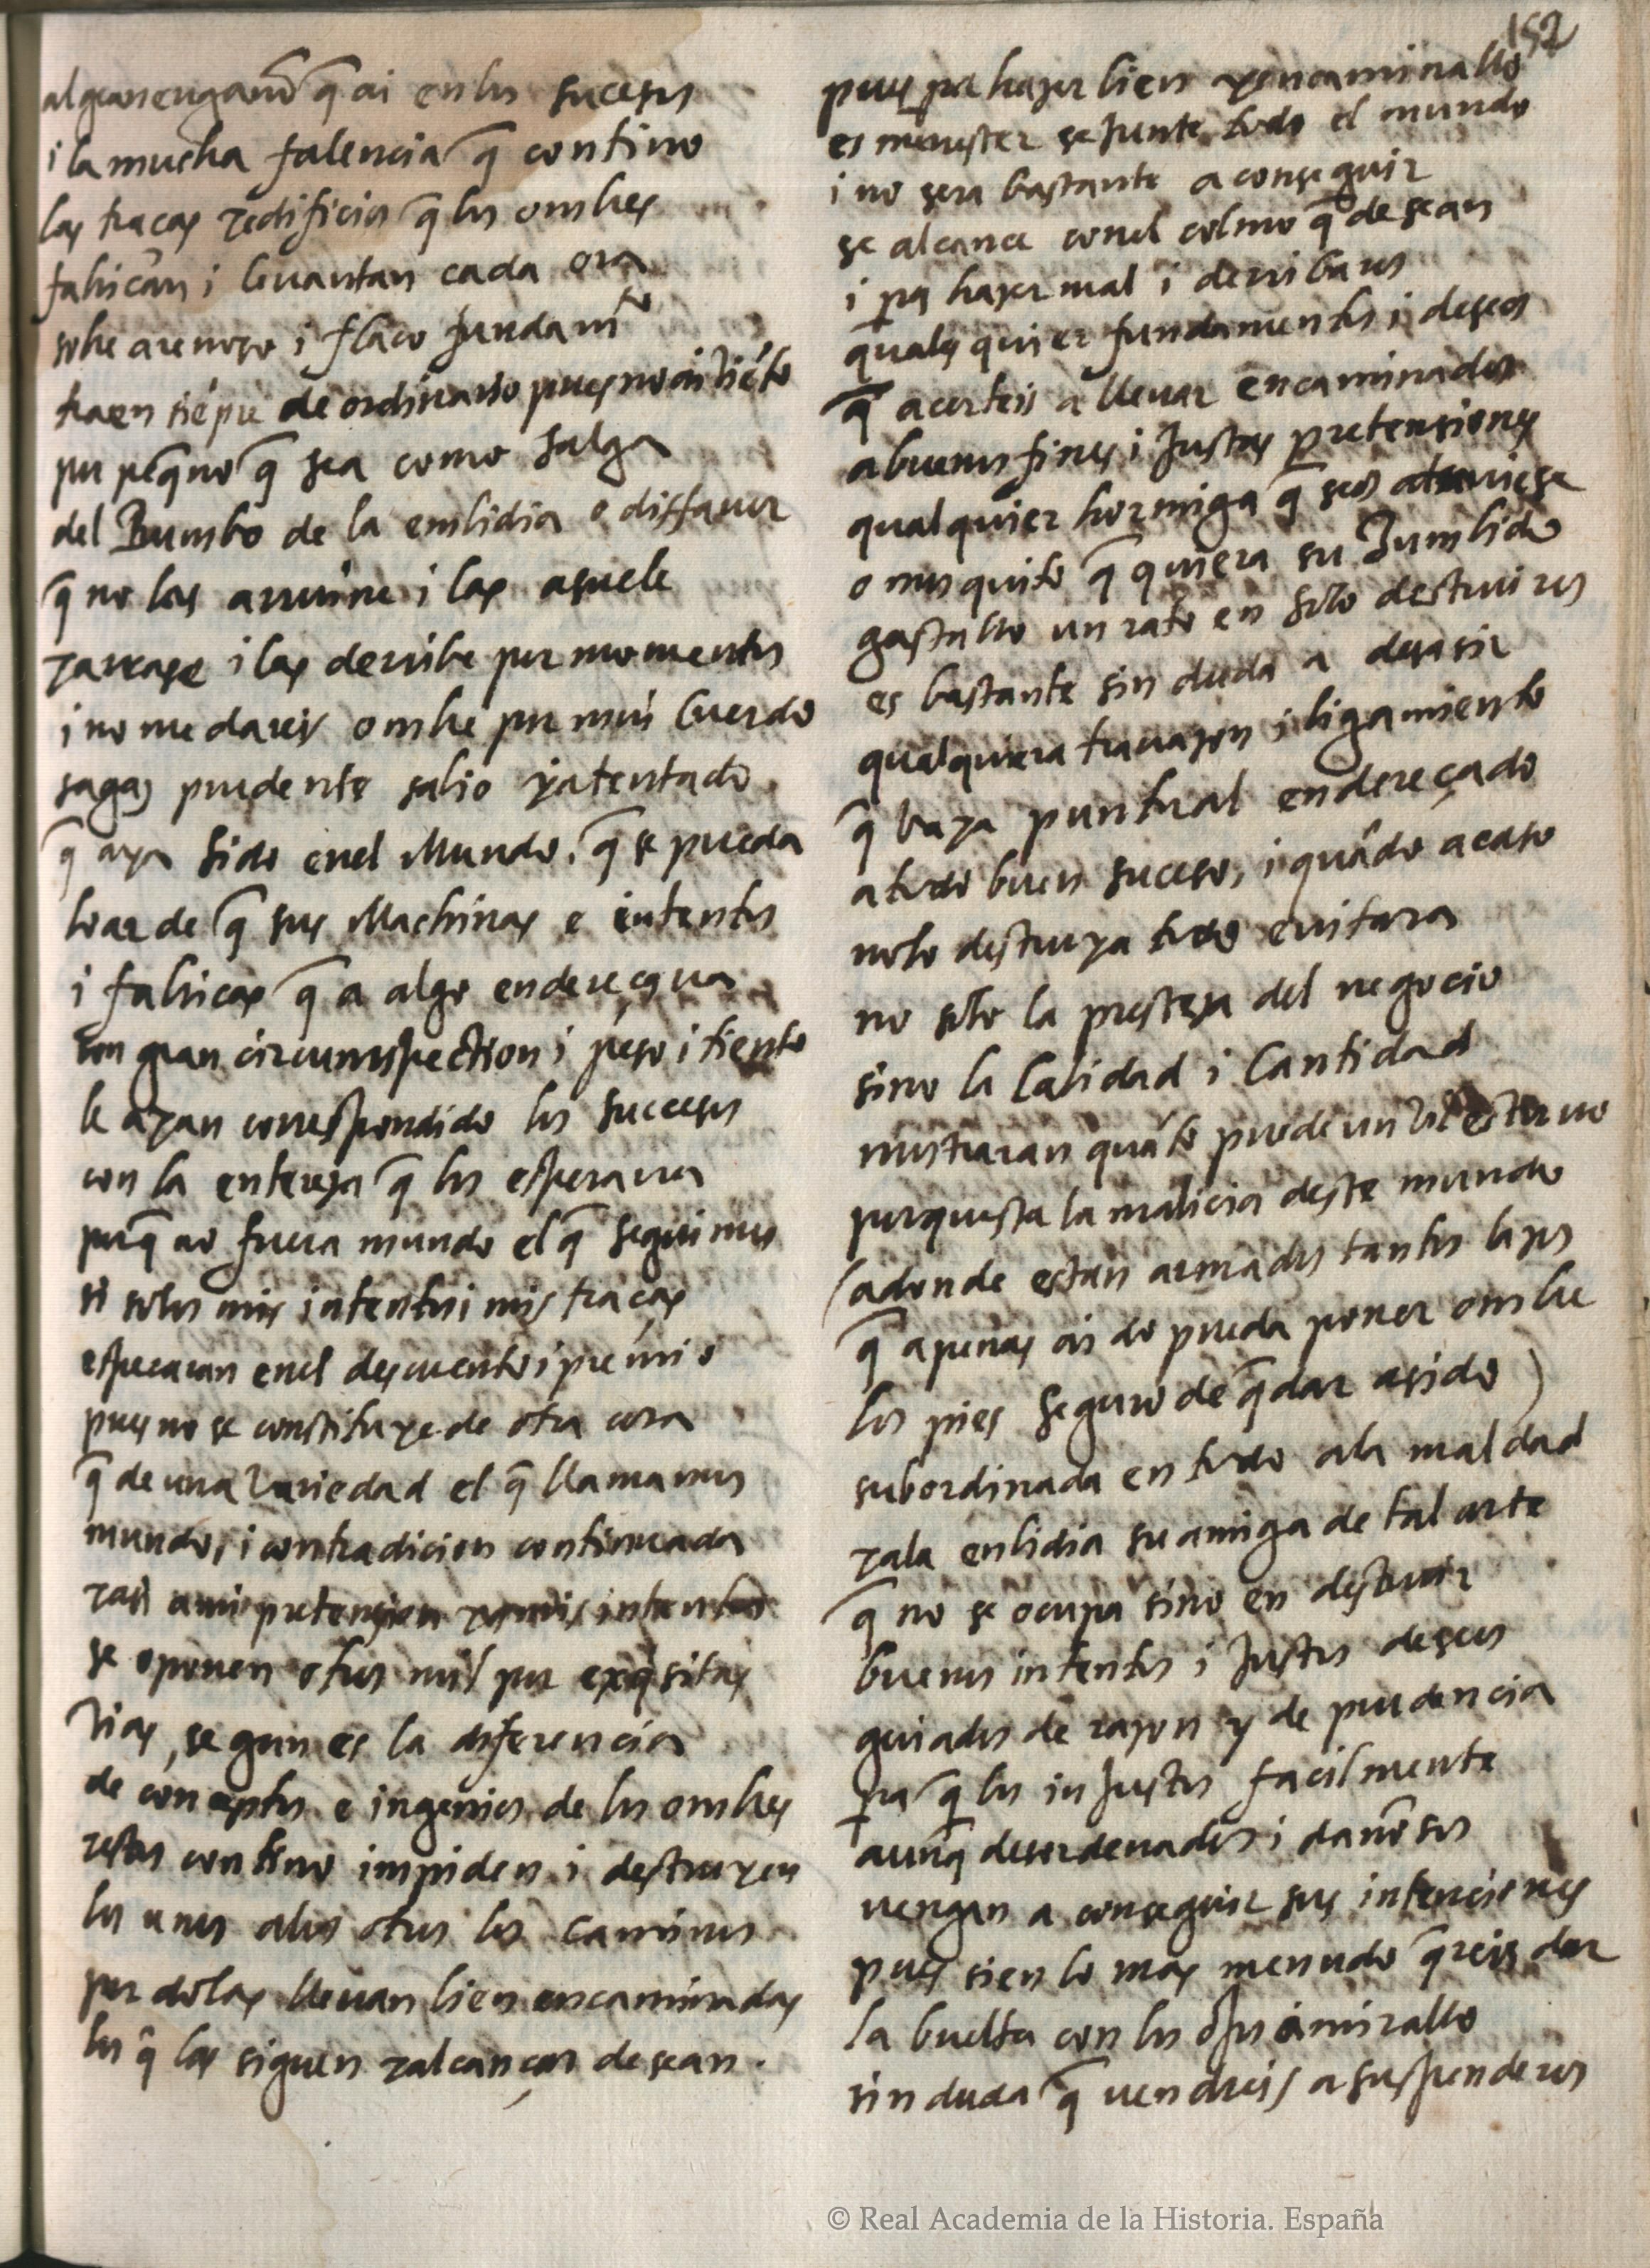 152
al gran engaño q̃ ai en los sucesos
i la mucha falencia q̃ contino
las traças y edificios q̃ los ombres
fabrican i leuantan cada ora
sobre arenoso i flaco fundam^to
traen siẽpre de ordinario pues no ai viẽto
por peq̃no q̃ sea como salga
del Bumbo de la embidia o disfauor
q̃ no las arruine i las asuele
y arrase i las derribe por momentos
i no me dareis ombre por mui Cuerdo
sagaz prudente sabio y atentado
q̃ aya sido en el Mundo. q̃ se pueda
loar de q̃ sus Machinas e intentos
i fabricas q̃ a algo endereçaua
con gran circumspection i peso i tiento
le ayan correspondido los successos
con la entereza q̃ los esperaua
porq̃ no fuera mundo el q̃ seguimos
si solos mis intentos i mis traças
esperaran en el descuento i premio
pues no se constituye de otra cosa
q̃ de una Variedad el q̃ llamamos
mundo, i contradicion continuada
y asi a mi pretension y a mis intentos
se oponen otros mil por exq̃sitas
Vias, segun es la diferencia
de conceptos e ingenios de los ombres
y estos contino impiden i destruyen
los unos a los otros los caminos
por do las lleuan bien encaminadas
los q̃ las siguen y alcançar desean.
pues pa hazer bien y encaminallo
es menester se Junte todo el mundo
i no sera bastante a conseguir
se alcance con el colmo q̃ desean
i pa hazer mal i derribaros
quales quier fundamentos i deseos
q̃ acerteis a lleuar encaminados
a buenos fines i Justas pretensiones
qualquier hormiga q̃ se os atrauiese
o mosquito q̃ quiera su Zumbido
gastallo un rato en solo destruiros
es bastante sin duda a desasir
qualquiera trauazon i ligamiento
q̃ baya puntual endereçado
a todo buen suceso, i quãdo acaso
no lo destruya todo euitara
no solo la presteza del negocio
sino la Calidad i Cantidad
mostraran quãto puede un Vil estoruo
porquesta la malicia deste mundo
(adonde estan armados tantos lazos
q̃ apenas ai do pueda poner ombre
los pies seguro de q̃dar asido)
subordinada en todo a la maldad
y a la enbidia su amiga de tal arte
q̃ no se ocupa sino en destruir
buenos intentos i Justos deseos
guiados de razon y de prudencia
pa q̃ los inJustos facilmente
aunq̃ desordenados i dañosos
uengan a conseguir sus intenciones
pues si en lo mas menudo q̃reis dar
la buelta con los ojos a mirallo
sin duda q̃ uendreis a suspenderos
© Real Academia de la Historia. España